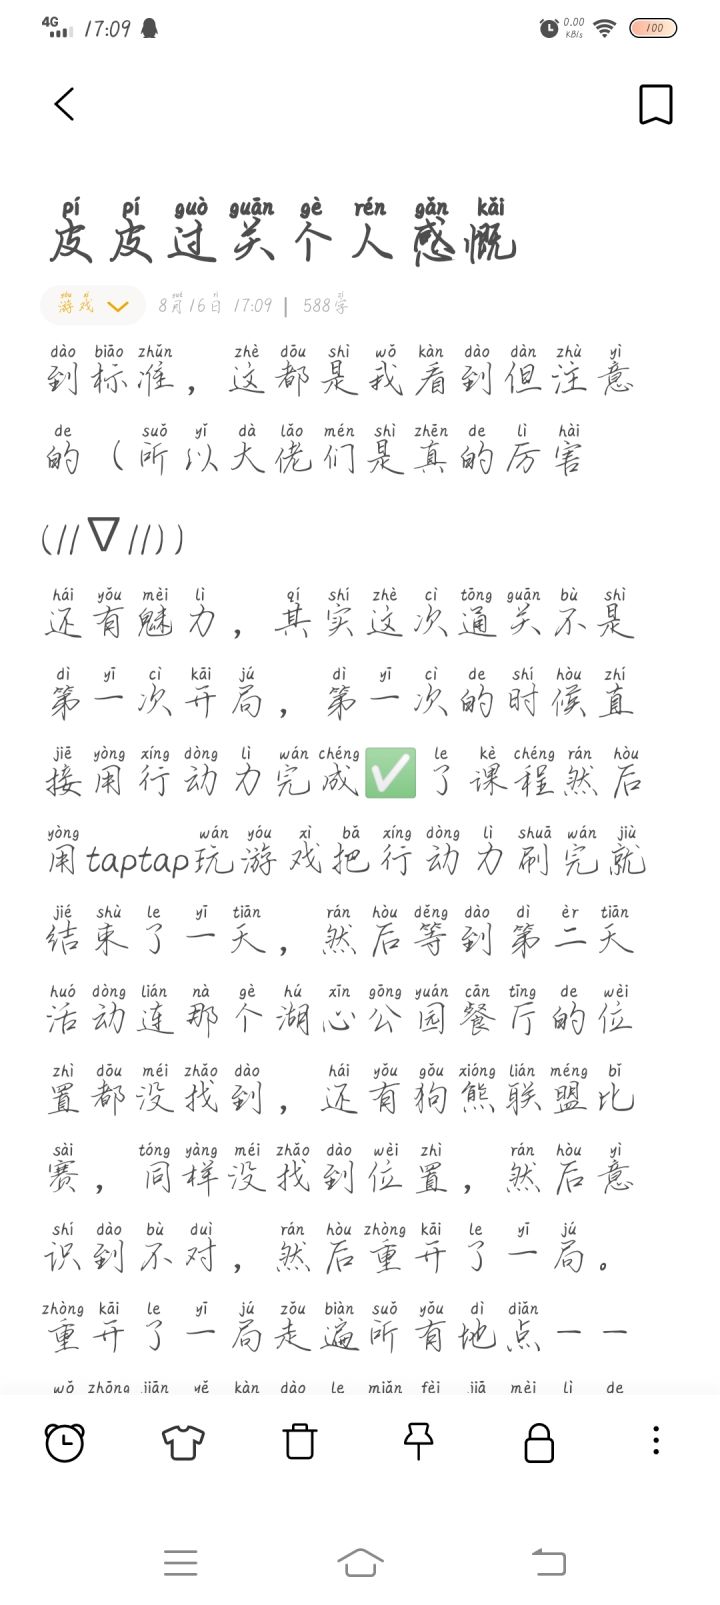 4G 17:09 0.00 KB/s 100
pí pí guò guān gè rén gǎn kǎi
皮皮过关个人感慨
yóu xì yuè rì zì
游戏 8月16日 17:09 | 588字
dào biāo zhǔn zhè dōu shì wǒ kàn dào dàn zhù yì
到标准，这都是我看到但注意
de suǒ yǐ dà lǎo mén shì zhēn de lì hài
的（所以大佬们是真的厉害
(//∇//))
hái yǒu mèi lì qí shí zhè cì tōng guān bù shì
还有魅力，其实这次通关不是
dì yī cì kāi jú dì yī cì de shí hòu zhí
第一次开局，第一次的时候直
jiē yòng xíng dòng lì wán chéng le kè chéng rán hòu
接用行动力完成✅了课程然后
yòng wán yóu xì bǎ xíng dòng lì shuā wán jiù
用taptap玩游戏把行动力刷完就
jié shù le yī tiān rán hòu děng dào dì èr tiān
结束了一天，然后等到第二天
huó dòng lián nà gè hú xīn gōng yuán cān tīng de wèi
活动连那个湖心公园餐厅的位
zhì dōu méi zhǎo dào hái yǒu gǒu xióng lián méng bǐ
置都没找到，还有狗熊联盟比
sài tóng yàng méi zhǎo dào wèi zhì rán hòu yì
赛，同样没找到位置，然后意
shí dào bù duì rán hòu zhòng kāi le yī jú
识到不对，然后重开了一局。
zhòng kāi le yī jú zǒu biàn suǒ yǒu dì diǎn
重开了一局走遍所有地点一一
wǒ zhōng jiān yě kàn dào le miǎn fèi jiā mèi lì de